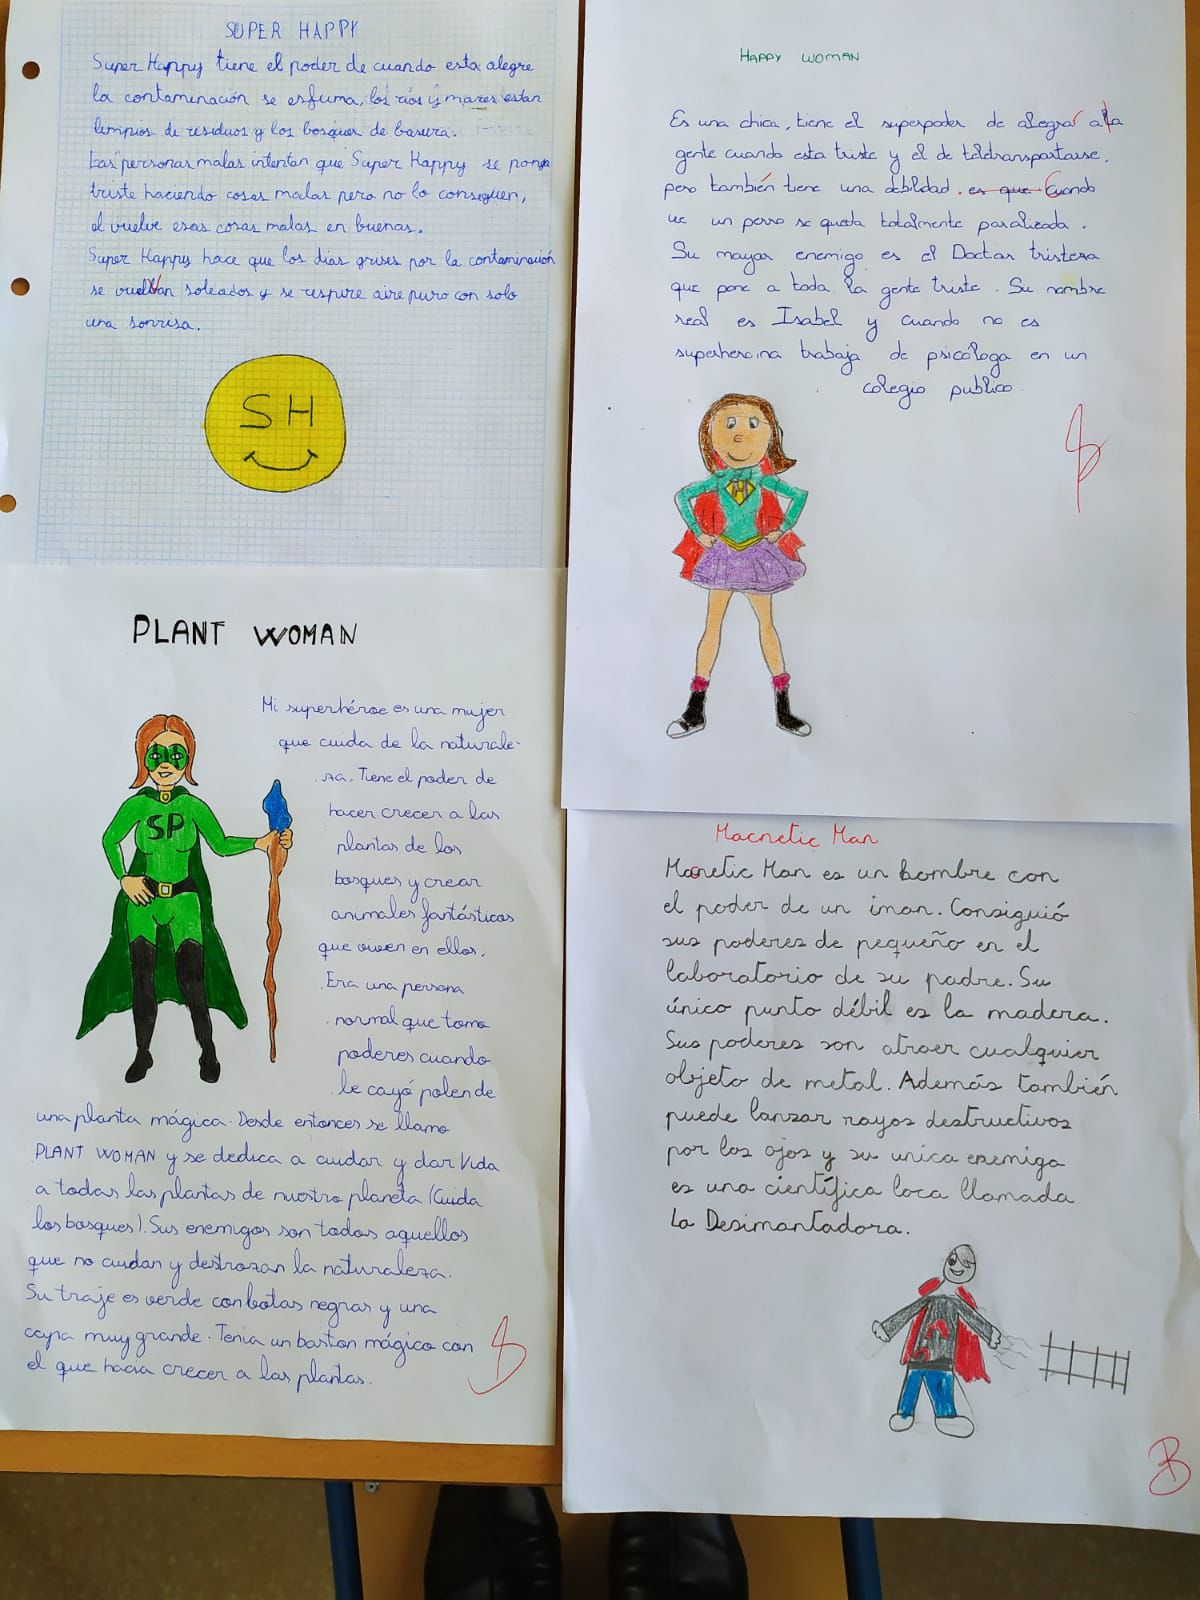 SUPER HAPPY
Super Happy tiene el poder de cuando esta alegre
la contaminación se esfuma, los ríos y mares estan
limpios de residuos y los bosques de basura.
Las personas malas intentan que Super Happy se ponga
triste haciendo cosas malas pero no lo conseguen,
el vuelve esas cosas malas en buenas.
Super Happy hace que los dias grises por la contaminación
se vuelvan soleados y se respire aire puro con solo
una sonrisa.
SH
HAPPY WOMAN
Es una chica, tiene el superpoder de alegrar a la
gente cuando esta triste y el de teletransportarse,
pero también tiene una debilidad. es que Cuando
ve un perro se queda totalmente paralizada.
Su mayor enemigo es el Doctor tristeza
que pone a toda la gente triste. Su nombre
real es Isabel y cuando no es
superheroina trabaja de psicóloga en un
colegio publico.
H
PLANT WOMAN
Mi superhéroe es una mujer
que cuida de la naturale-
za. Tiene el poder de
hacer crecer a las
plantas de los
bosques y crear
animales fantásticos
que viven en ellos.
Era una persona
normal que tomo
poderes cuando
le cayó polen de
una planta mágica. Desde entonces se llamo
PLANT WOMAN y se dedica a cuidar y dar vida
a todas las plantas de nuestro planeta (Cuida
los bosques). Sus enemigos son todos aquellos
que no cuidan y destrozan la naturaleza.
Su traje es verde con botas negras y una
capa muy grande. Tenia un baston mágico con
el que hacia crecer a las plantas.
SP
Macnetic Man
Macnetic Man es un hombre con
el poder de un iman. Consiguió
sus poderes de pequeño en el
laboratorio de su padre. Su
único punto débil es la madera.
Sus poderes son atraer cualquier
objeto de metal. Además también
puede lanzar rayos destructivos
por los ojos y su unica enemiga
es una científica loca llamada
La Desimantadora.